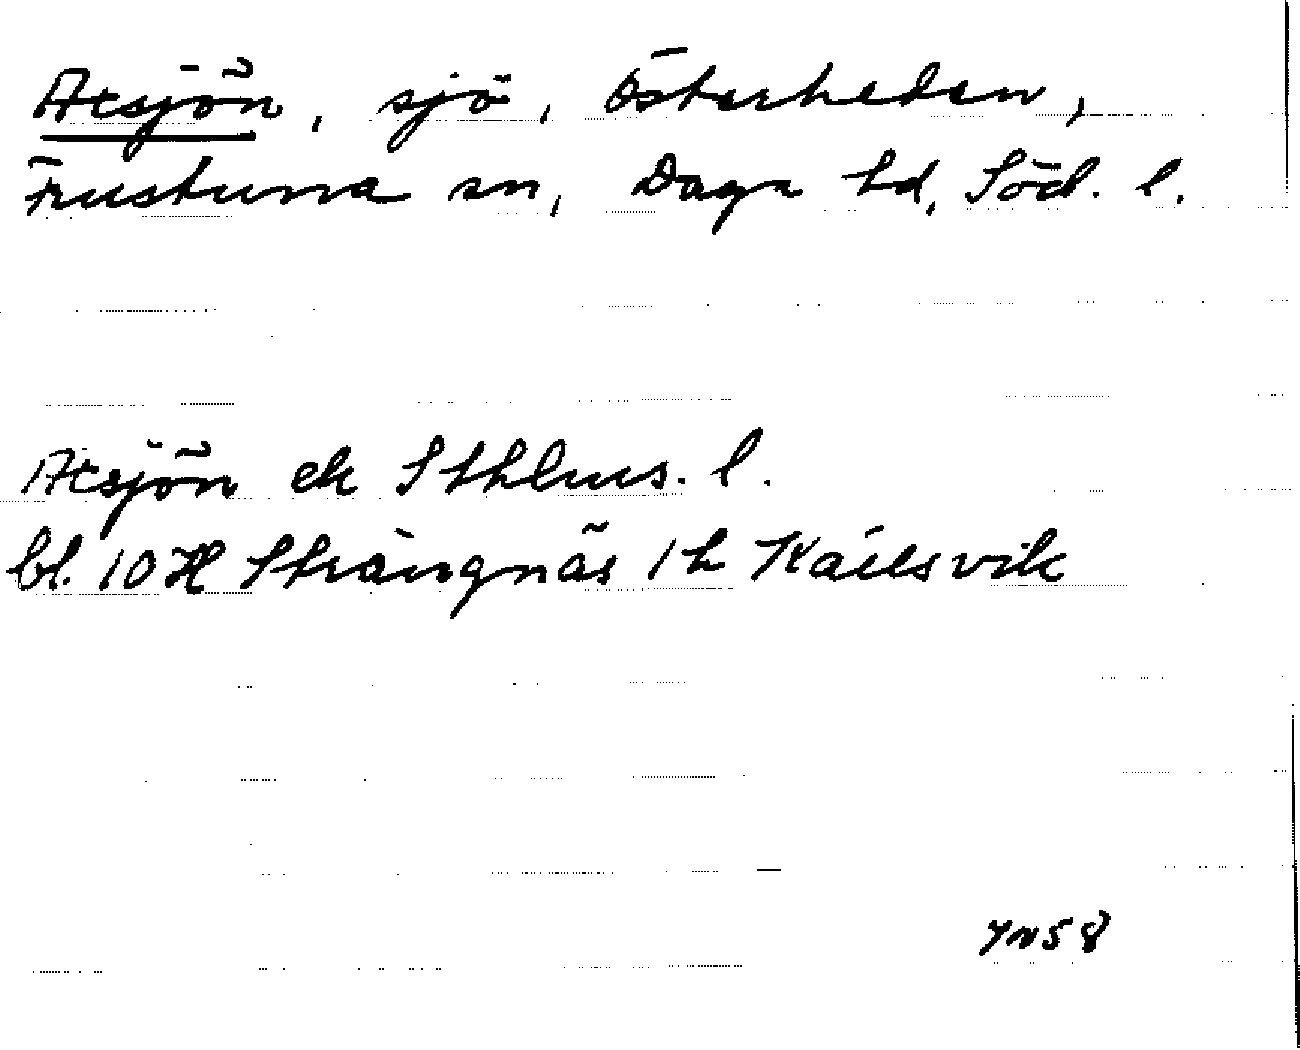 Atsjön, sjö, Österheden,
Frustuna sn, Daga hd, Söd. l.
Atsjön ek Sthlms. l.
bl. 10 H Strängnäs 1 h